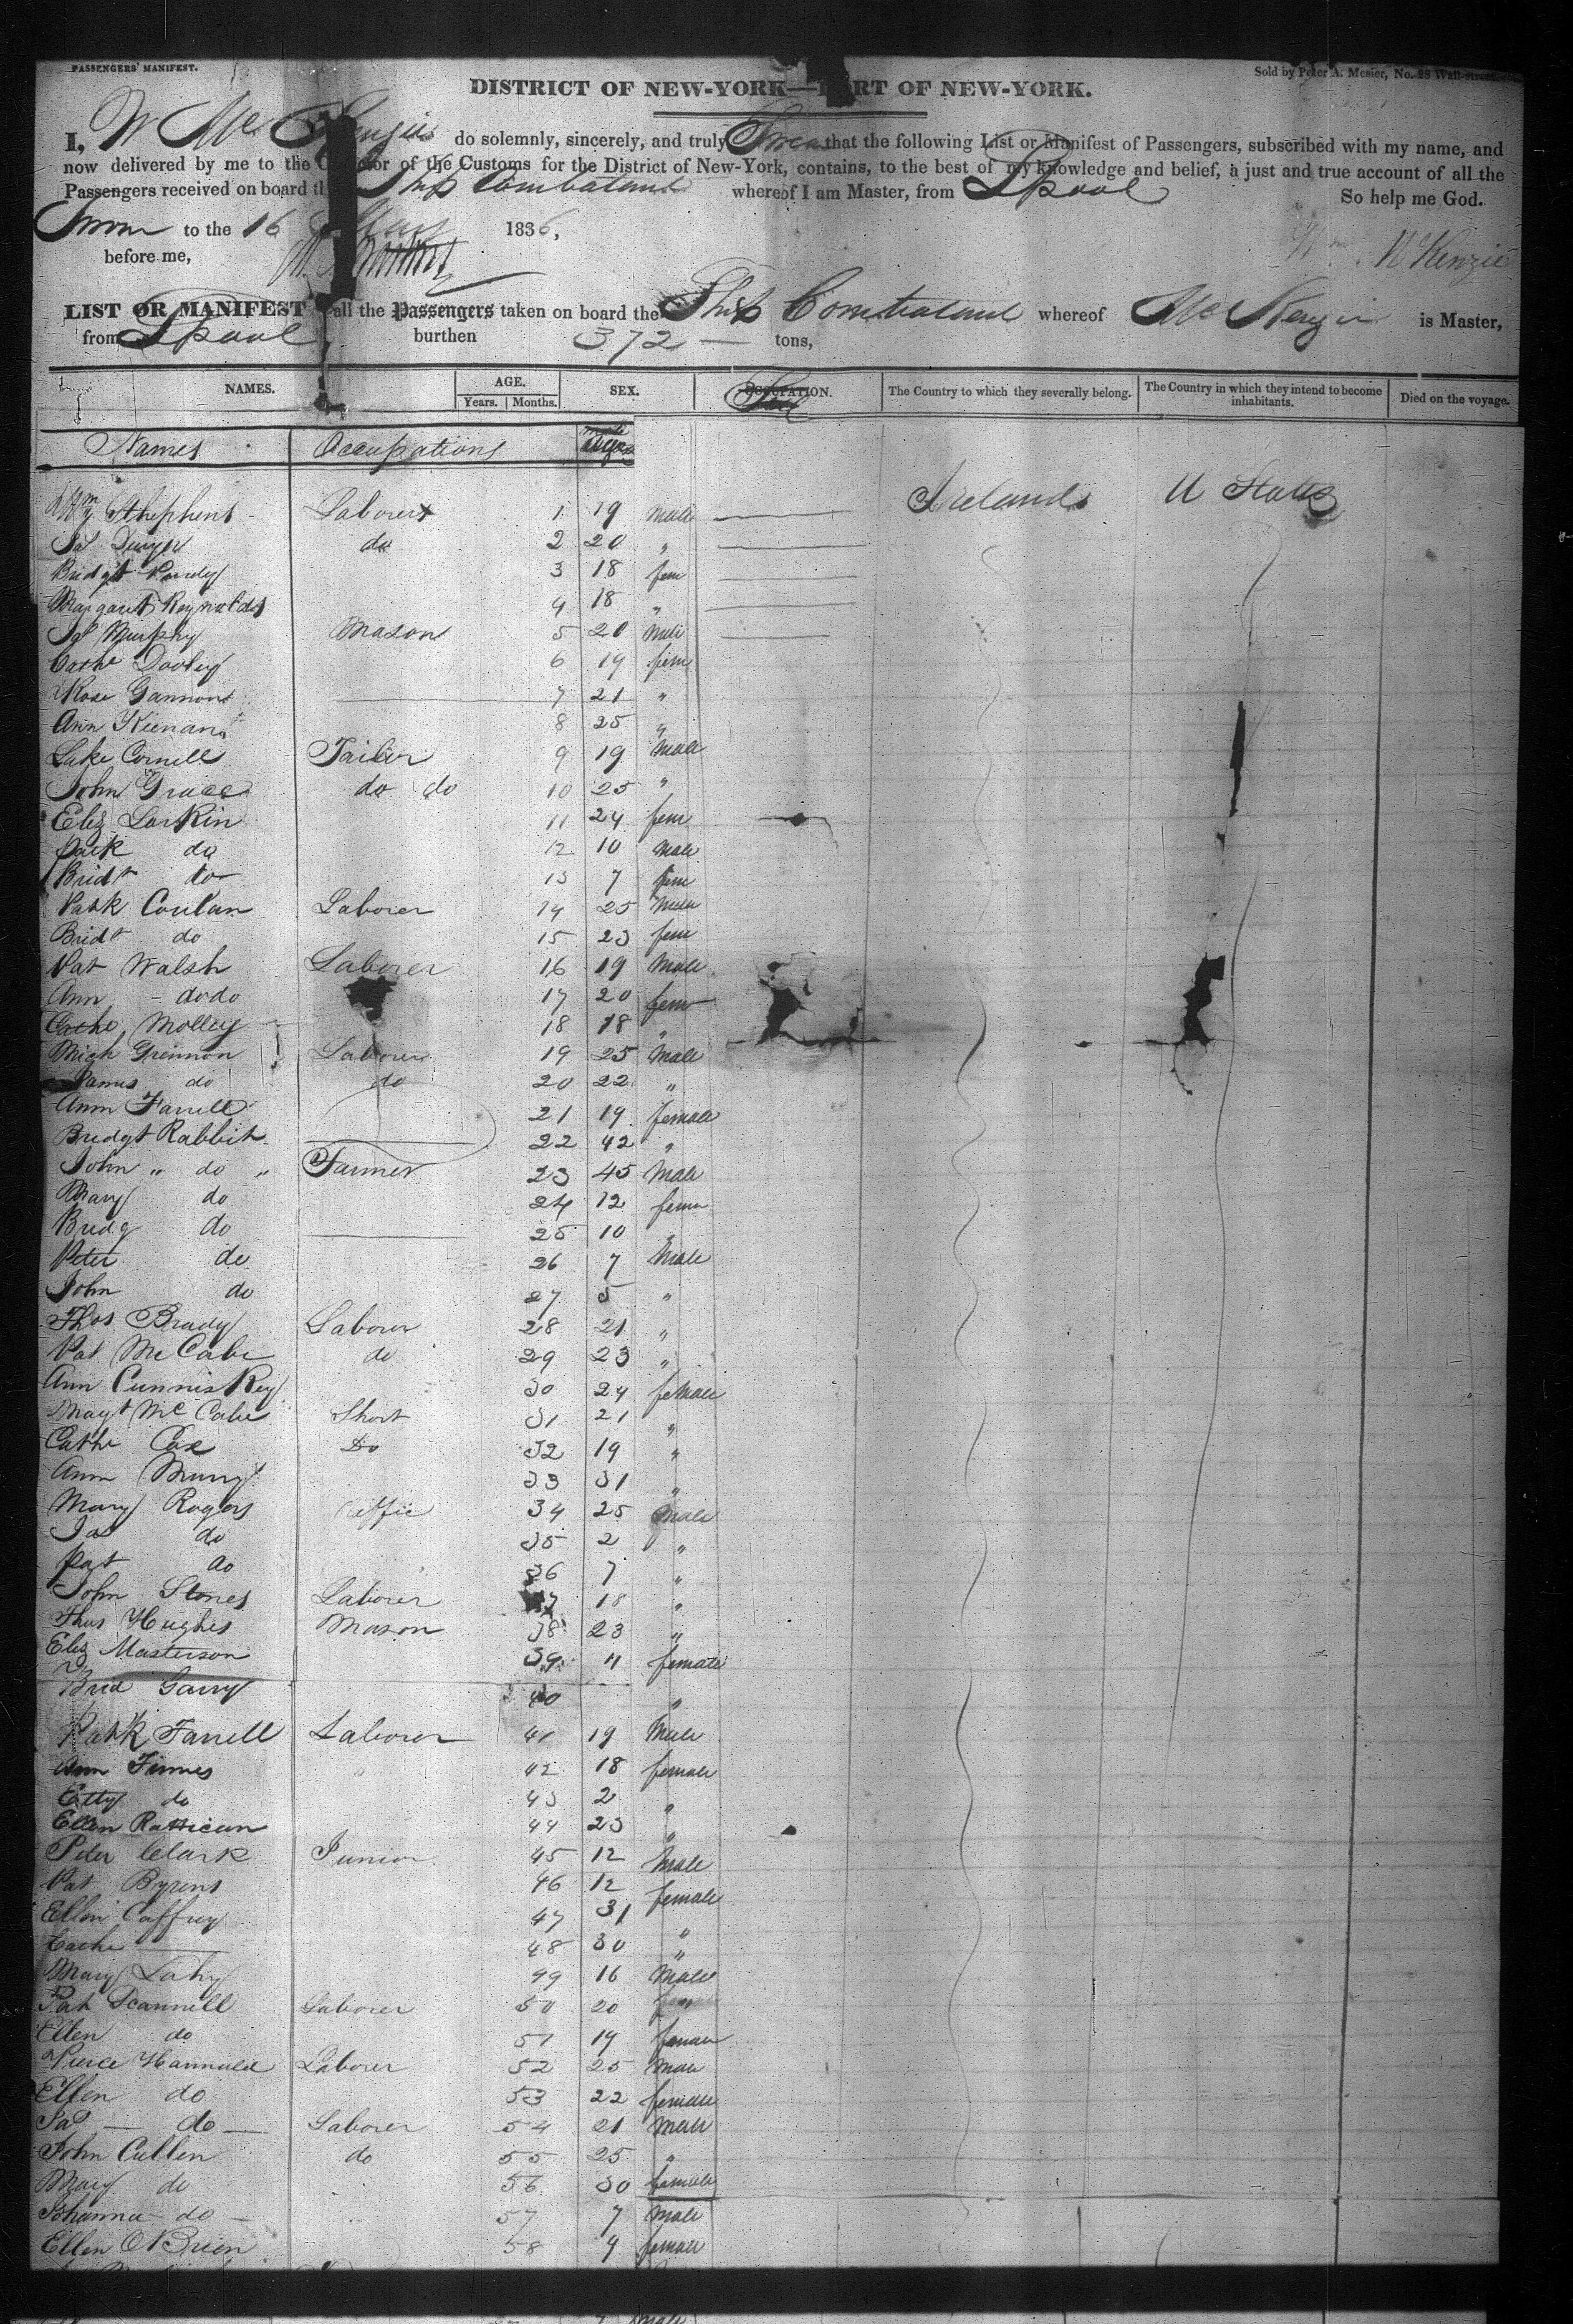 PASSENGERS' MANIFEST.
Sold by Peter A. Mesier, No. 28 Wall-street
DISTRICT OF NEW-YORK—PORT OF NEW-YORK.
I, W Mc Kenzie do solemnly, sincerely, and truly Swear that the following List or Manifest of Passengers, subscribed with my name, and
now delivered by me to the Collector of the Customs for the District of New-York, contains, to the best of my knowledge and belief, a just and true account of all the
Passengers received on board the Ship whereof I am Master, from Lpool
So help me God.
Sworn to the 16 1836,
before me,
Wm McKenzie
LIST OR MANIFEST all the Passengers taken on board the Ship whereof Mc Kenzie is Master,
from Lpool burthen 372 — tons,
NAMES. AGE. Years. Months. SEX. OCCUPATION. The Country to which they severally belong. The Country in which they intend to become inhabitants. Died on the voyage.
Names Occupations
Sthephens Laborer 1 19 Male Ireland U States
do 2 20 "
Bridgt 3 18 fem
Margaret Reynolds 4 18 "
Js Murphy Mason 5 20 Male
Cathe Dooley 6 19 fem
Rose Gannon 7 21 "
Ann Kienan 8 25 "
Luke Cornell Tailor 9 19 Male
John Grace do do 10 25 "
Eliz Larkin 11 24 fem
do 12 10 Male
Bridt do 13 7 fem
Patk Conlan Laborer 14 25 Male
Bridt do 15 23 fem
Pat Walsh Laborer 16 19 Male
Ann - do do 17 20 fem
Cathe Molley 18 18 "
Mich Grennon Laborer 19 25 Male
James do do 20 22 "
Ann Farrell 21 19 female
Bridgt Rabbit 22 42 "
John " do " Farmer 23 45 Male
Mary do 24 12 fem
Bridg do 25 10 "
Peter do 26 7 Male
John do 27 5 "
Thos Brady Laborer 28 21 "
Pat McCabe do 29 23 "
Ann Cunniskey 30 24 female
Mayt McCabe 31 21 "
Cathe Cox Do 32 19 "
Ann Murry 33 31 "
Mary Rogers 34 25 Male
Jas do 35 2 "
Pat do 36 7 "
John Stones Laborer 37 18 "
Thos Hughes Mason 38 23 "
Eliz Masterson 39 11 female
Brid Garry 40 "
Patk Farrell Laborer 41 19 Male
Ann 42 18 female
do 43 2 "
Ellen Rattican 44 23 "
Peter Clark Junior 45 12 Male
Pat Byrens 46 12 female
Ellen Caffrey 47 31 "
Cathe 48 30 "
Mary Lahy 49 16 Male
Pat Scannell Laborer 50 20
Ellen do 51 19 female
Pierce Laborer 52 25 Male
Ellen do 53 22 female
Jas — do — Laborer 54 21 Male
John Cullen do 55 25 "
Mary do 56 30 female
Johanna - do - 57 7 Male
Ellen OBrien 58 9 female
Male